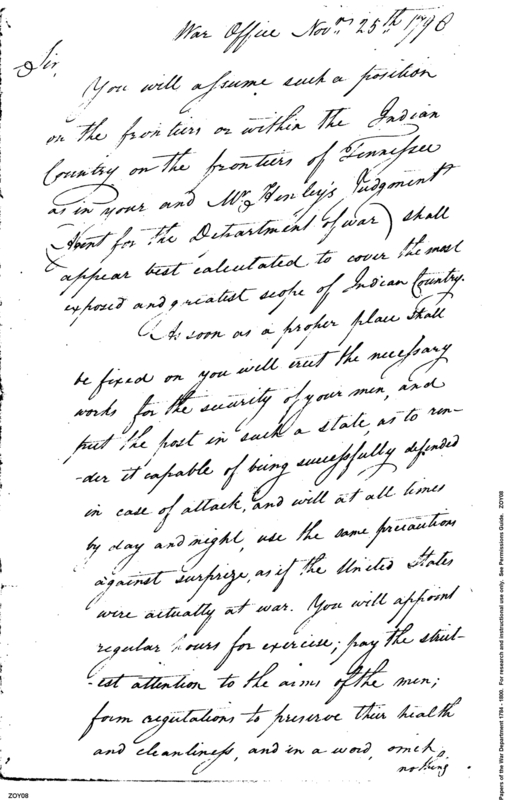 War Office Nov.r 25th 1798
Sir,
You will assume such a position
on the frontiers or within the Indian
Country on the frontiers of Tennessee
as in your and Mr. Henley's Judgment
(Agent for the Department of war) shall
appear best calculated to cover the most
exposed and greatest scope of Indian Country.
As soon as a proper place shall
be fixed on you will erect the necessary
works for the security of your men, and
put the post in such a state, as to ren-
-der it capable of being successfully defended
in case of attack, and will at all times
by day and night, use the same precautions
against surprize, as if the United States
were actually at war. You will appoint
regular hours for exercise; pay the strict-
-est attention to the arms of the men;
form regulations to preserve their health
and cleanliness, and in a word, omit
nothing
ZOY08
Papers of the War Department 1784 - 1800. For research and instructional use only. See Permissions Guide. ZOY08